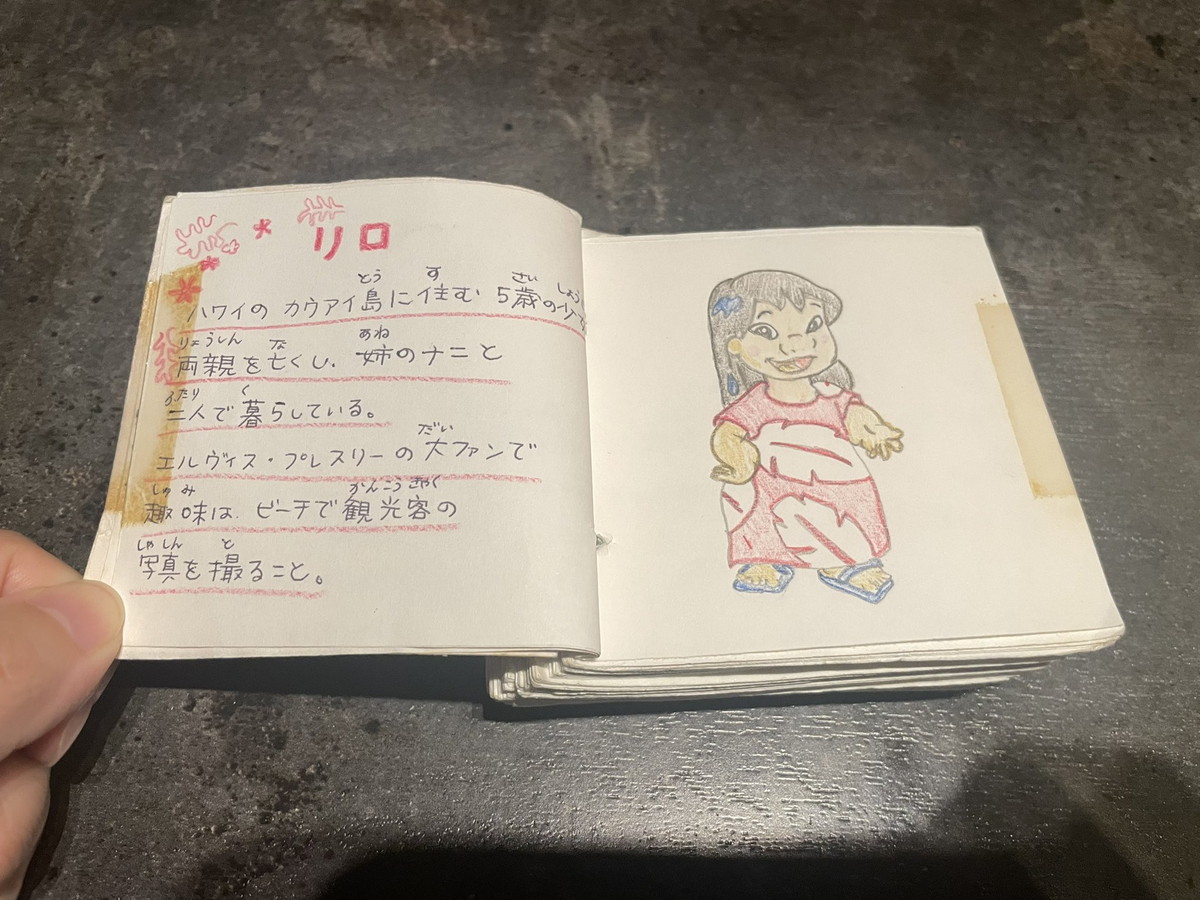 リロ
とう す さい しょう
ハワイの カウアイ島に住む 5歳の少女
りょうしん な あね
両親を亡くし、姉のナニと
ふたり く
二人で暮らしている。
だい
エルヴィス・プレスリーの大ファンで
しゅみ かんこうきゃく
趣味は、ビーチで観光客の
しゃしん と
写真を撮ること。